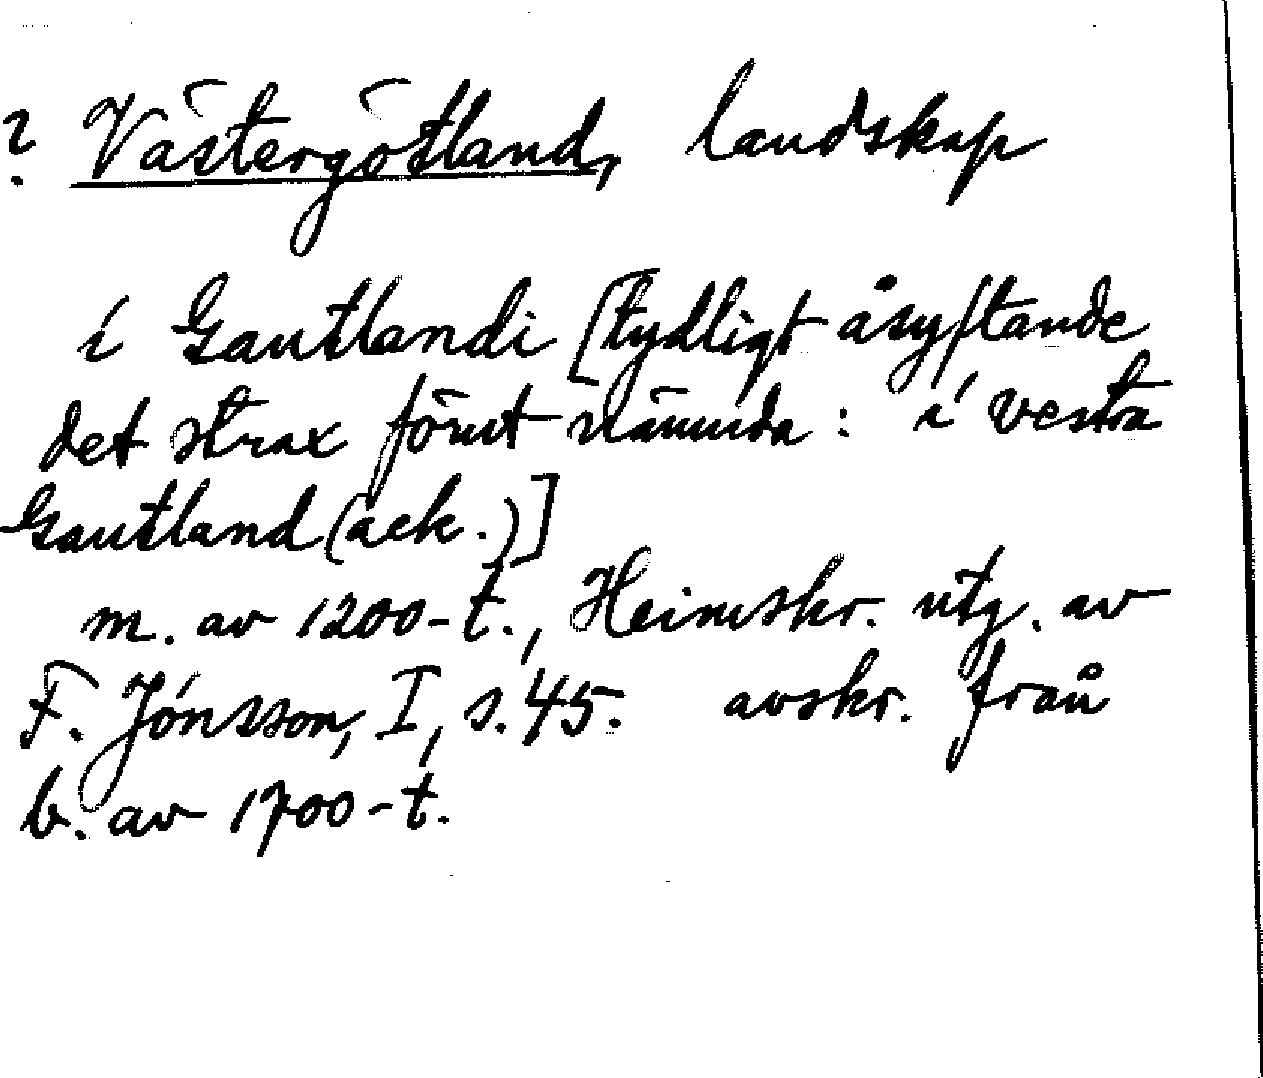 ? Västergötland, landskap
í Gautlandi [tydligt åsyftande
det strax förut nämnda: í vestra
Gautland (ack.)]
m. av 1200-t., Heimskr. utg. av
F. Jónsson, I, s. 45. avskr. från
b. av 1700-t.